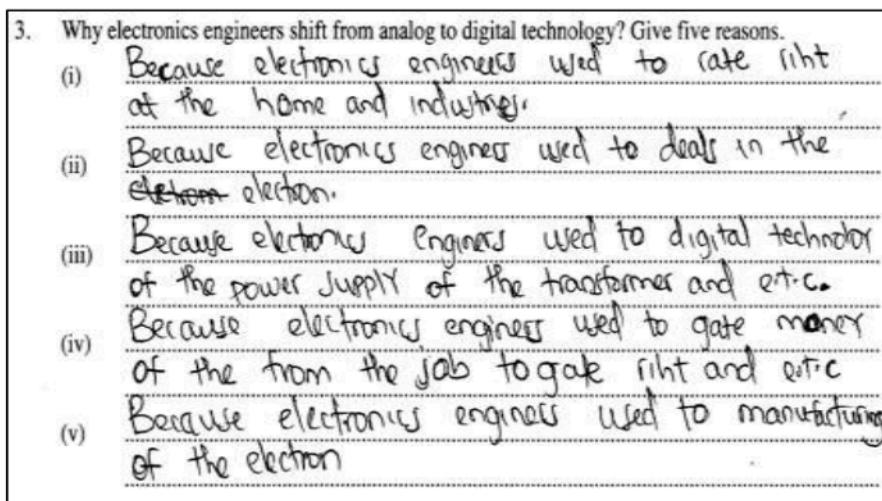 3. Why electronics engineers shift from analog to digital technology? Give five reasons.
(i) Because electronics engineers used to rate riht
at the home and industries.
(ii) Because electronics enginers used to deals in the
electron.
(iii) Because electronics enginers used to digital technolor
of the power supply of the transformer and e.t.c.
(iv) Because electronics enginers used to gate money
of the from the job to gate riht and e.t.c
(v) Because electronics enginers used to manufacturing
of the electron